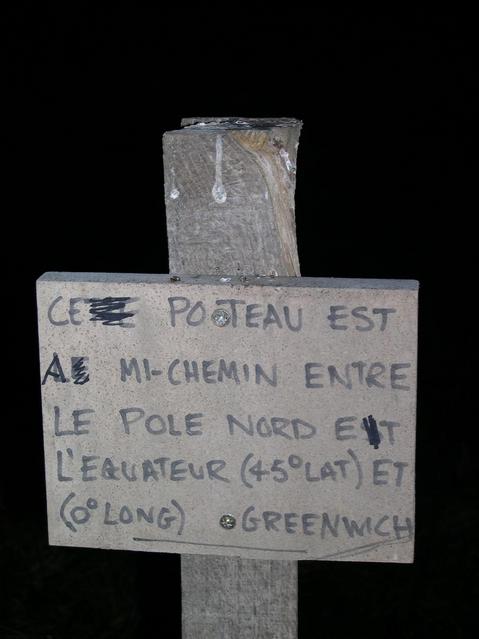 CE POTEAU EST
A MI-CHEMIN ENTRE
LE POLE NORD ET
L'EQUATEUR (45°LAT) ET
(0°LONG) GREENWICH